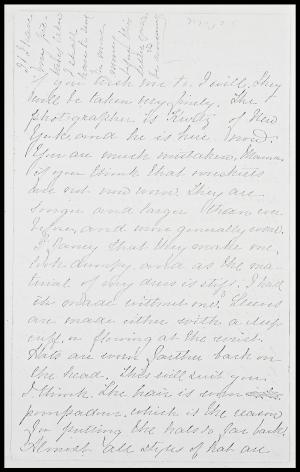 you wish me to I will. They
will be taken very finely. The
photographer is Kurtz of New
York and he is here now.
You are much mistaken, Mamma
if you think that overskirts
are not now worn. They are
longer and larger than ever
before, and more generally worn.
I fancy that they make me
look dumpy, and as the ma-
terial of my dress is stiff, I had
it made without one. Sleeves
are made either with a deep
cuff or flowing at the wrist.
Hats are worn farther back on
the head. This will suit you
I think. The hair is worn
pompadour which is the reason
for putting the hats so far back.
Almost all styles of hat are
If I have
my pic
taken here
I shall
have it
in one